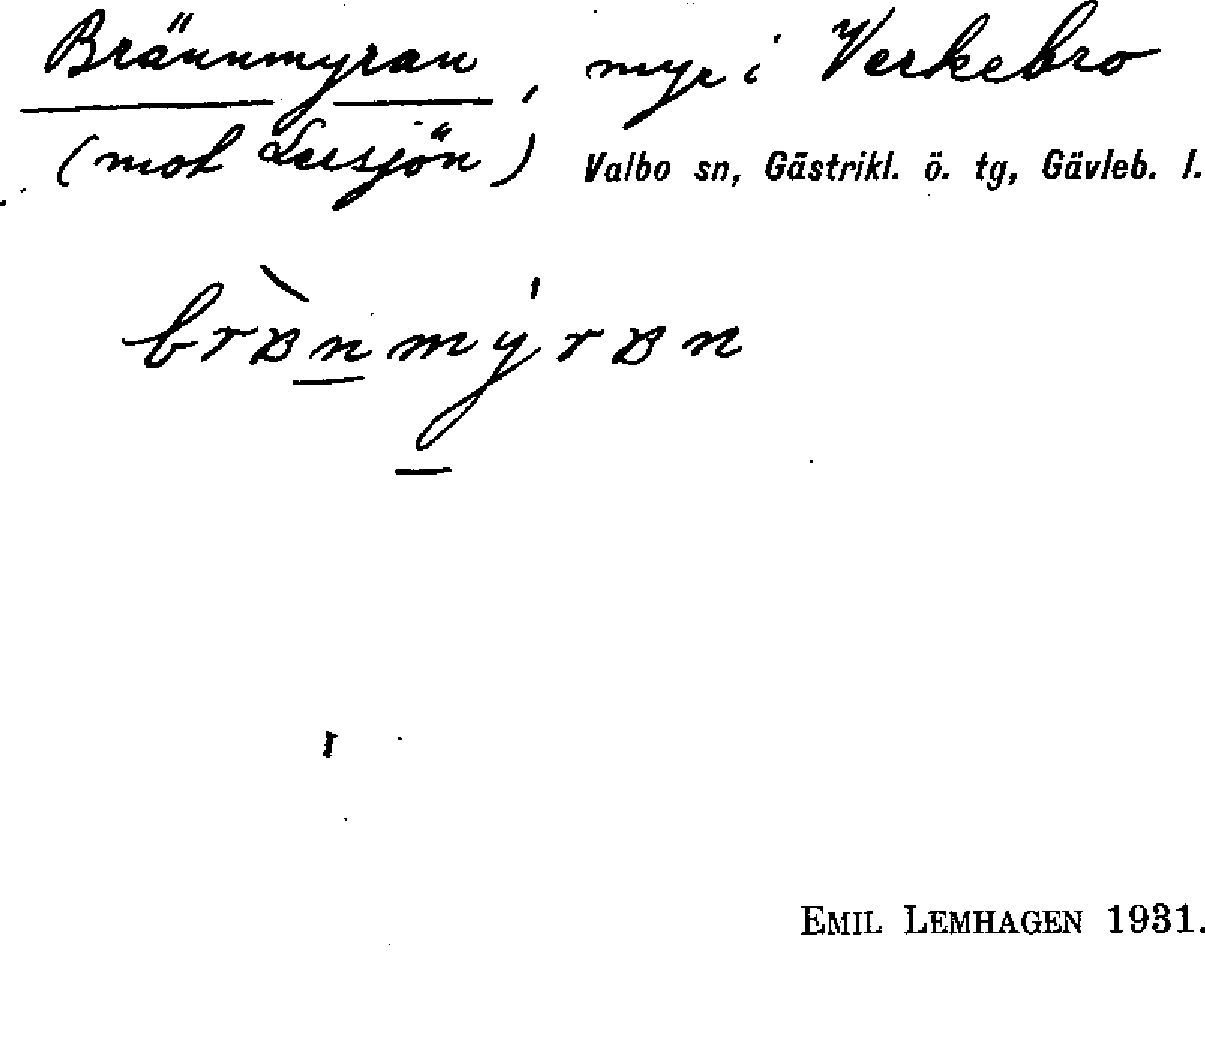 Brännmyran, myr i Verkebro
(mot Lersjön) Valbo sn, Gästrikl. ö. tg, Gävleb. l.
EMIL LEMHAGEN 1931.